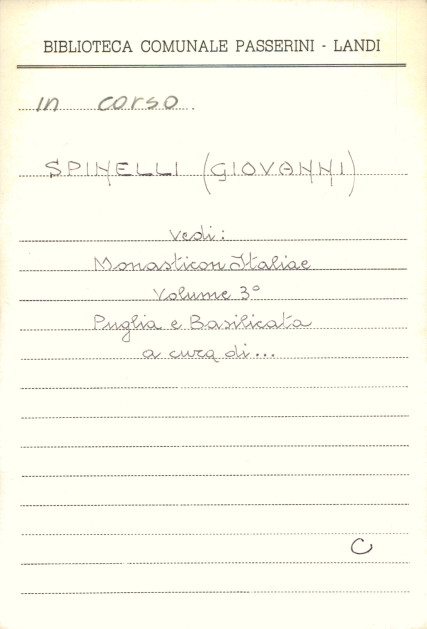 BIBLIOTECA COMUNALE PASSERINI - LANDI
in corso.
SPINELLI (GIOVANNI)
Vedi:
Monasticon Italiae
Volume 3°
Puglia e Basilicata
a cura di...
C